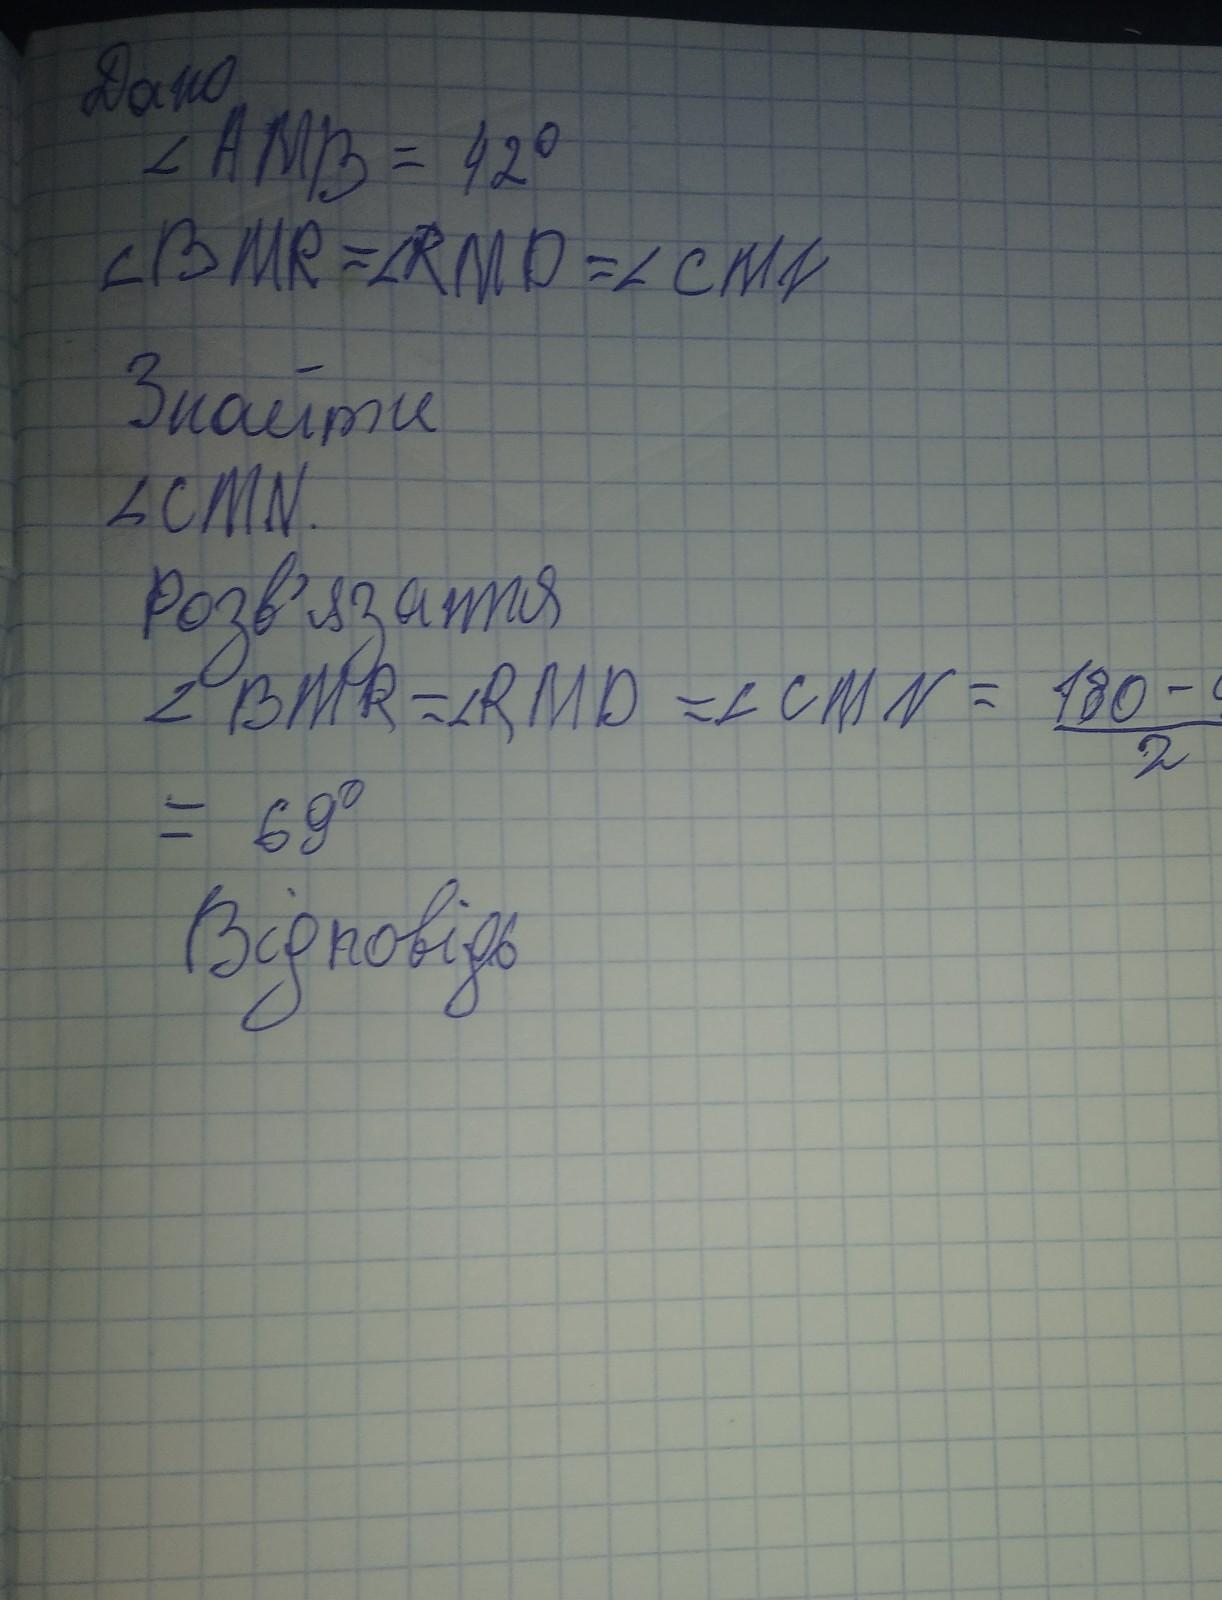 Дано
∠AMB = 42°
∠BMR=∠RMD=∠CMN
Знайти
∠CMN.
Розв'язаття
∠BMR=∠RMD=∠CMN= 180-
2
= 69°
Відповідь